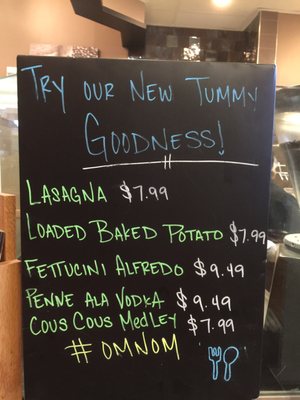 TRY OUR NEW TUMMY
GOODNESS!
LASAGNA $7.99
LOADED BAKED POTATO $7.99
FETTUCINI ALFREDO $9.49
PENNE ALA VODKA $9.49
COUS COUS MEDLEY $7.99
#OMNOM